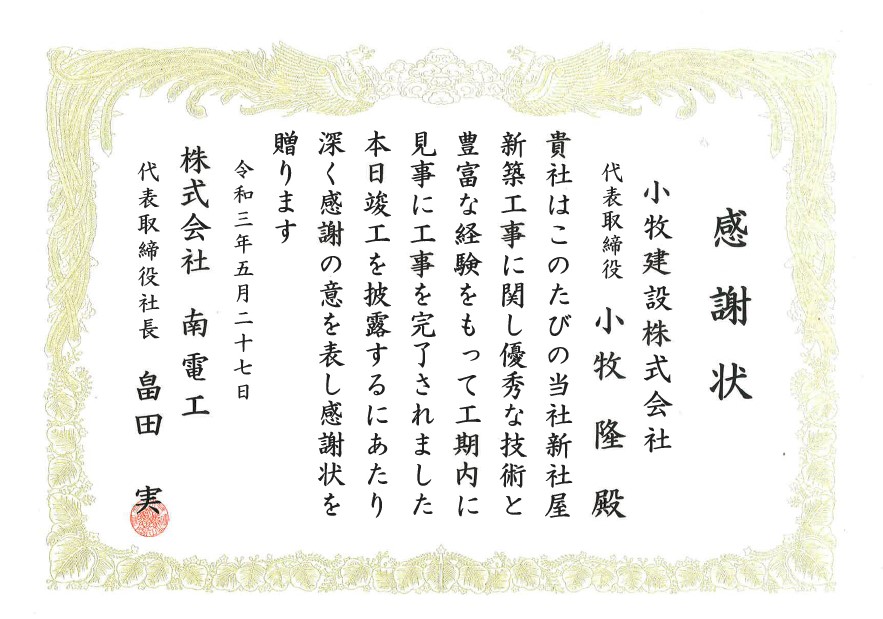 感謝状
小牧建設株式会社
代表取締役 小牧 隆 殿
貴社はこのたびの当社新社屋
新築工事に関し優秀な技術と
豊富な経験をもって工期内に
見事に工事を完了されました
本日竣工を披露するにあたり
深く感謝の意を表し感謝状を
贈ります
令和三年五月二十七日
株式会社 南電工
代表取締役社長 畠田 実